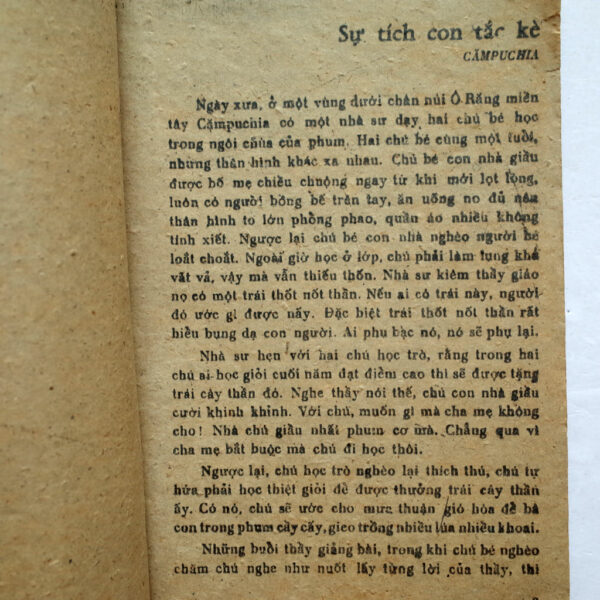 Sự tích con tắc kè
CĂMPUCHIA
Ngày xưa, ở một vùng dưới chân núi Ô Răng miền
tây Cămpuchia có một nhà sư dạy hai chú bé học
trong ngôi chùa của phum. Hai chú bé cùng một tuổi,
nhưng thân hình khác xa nhau. Chú bé con nhà giầu
được bố mẹ chiều chuộng ngay từ khi mới lọt lòng,
luôn có người bồng bế trên tay, ăn uống no đủ nên
thân hình to lớn phồng phao, quần áo nhiều không
tính xiết. Ngược lại chú bé con nhà nghèo người bé
loắt choắt. Ngoài giờ học ở lớp, chú phải làm lụng khá
vất vả, vậy mà vẫn thiếu thốn. Nhà sư kiêm thầy giáo
nọ có một trái thốt nốt thần. Nếu ai có trái này, người
đó ước gì được nấy. Đặc biệt trái thốt nốt thần rất
hiểu bụng dạ con người. Ai phụ bạc nó, nó sẽ phụ lại.
Nhà sư hẹn với hai chú học trò, rằng trong hai
chú ai học giỏi cuối năm đạt điểm cao thì sẽ được tặng
trái cây thần đó. Nghe thầy nói thế, chú con nhà giầu
cười khinh khỉnh. Với chú, muốn gì mà cha mẹ không
cho! Nhà chú giầu nhất phum cơ mà. Chẳng qua vì
cha mẹ bắt buộc mà chú đi học thôi.
Ngược lại, chú học trò nghèo lại thích thú, chú tự
hứa phải học thiệt giỏi để được thưởng trái cây thần
ấy. Có nó, chú sẽ ước cho mưa thuận gió hòa để bà
con trong phum cầy cấy, gieo trồng nhiều lúa nhiều khoai.
Những buổi thầy giảng bài, trong khi chú bé nghèo
chăm chú nghe như nuốt lấy từng lời của thầy, thì